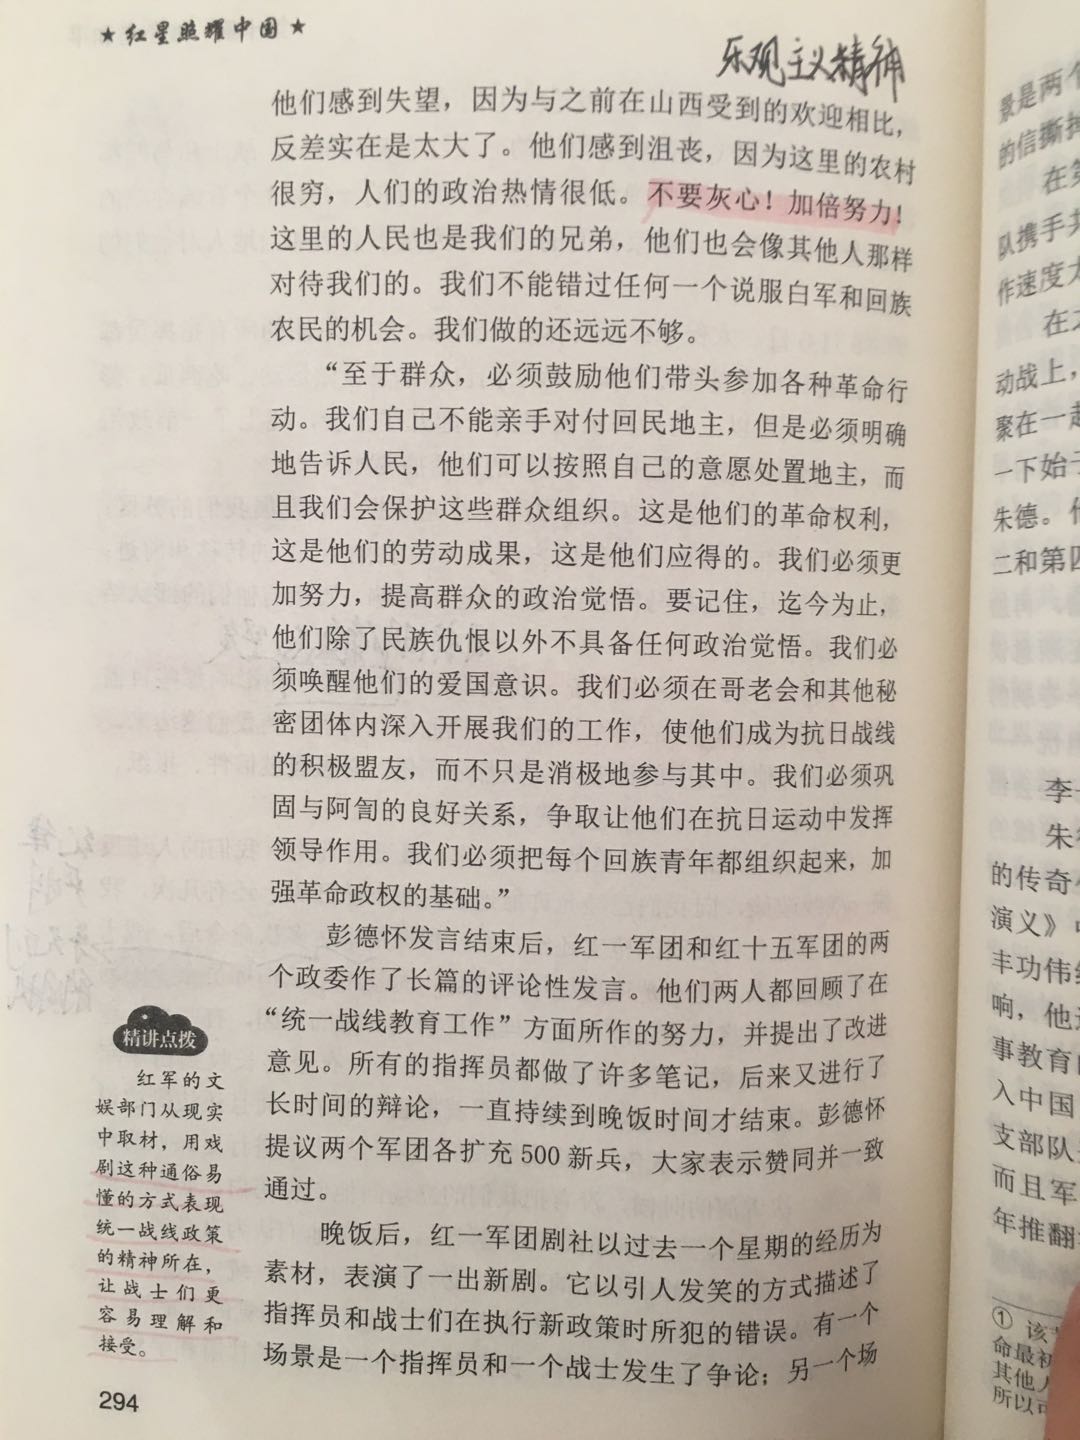 ★ 红星照耀中国 ★
乐观主义精神
他们感到失望，因为与之前在山西受到的欢迎相比，
反差实在是太大了。他们感到沮丧，因为这里的农村
很穷，人们的政治热情很低。不要灰心！加倍努力！
这里的人民也是我们的兄弟，他们也会像其他人那样
对待我们的。我们不能错过任何一个说服白军和回族
农民的机会。我们做的还远远不够。
“至于群众，必须鼓励他们带头参加各种革命行
动。我们自己不能亲手对付回民地主，但是必须明确
地告诉人民，他们可以按照自己的意愿处置地主，而
且我们会保护这些群众组织。这是他们的革命权利，
这是他们的劳动成果，这是他们应得的。我们必须更
加努力，提高群众的政治觉悟。要记住，迄今为止，
他们除了民族仇恨以外不具备任何政治觉悟。我们必
须唤醒他们的爱国意识。我们必须在哥老会和其他秘
密团体内深入开展我们的工作，使他们成为抗日战线
的积极盟友，而不只是消极地参与其中。我们必须巩
固与阿訇的良好关系，争取让他们在抗日运动中发挥
领导作用。我们必须把每个回族青年都组织起来，加
强革命政权的基础。”
彭德怀发言结束后，红一军团和红十五军团的两
个政委作了长篇的评论性发言。他们两人都回顾了在
“统一战线教育工作”方面所作的努力，并提出了改进
意见。所有的指挥员都做了许多笔记，后来又进行了
长时间的辩论，一直持续到晚饭时间才结束。彭德怀
提议两个军团各扩充500新兵，大家表示赞同并一致
通过。
晚饭后，红一军团剧社以过去一个星期的经历为
素材，表演了一出新剧。它以引人发笑的方式描述了
指挥员和战士们在执行新政策时所犯的错误。有一个
场景是一个指挥员和一个战士发生了争论；另一个场
精讲点拨
红军的文
娱部门从现实
中取材，用戏
剧这种通俗易
懂的方式表现
统一战线政策
的精神所在，
让战士们更
容易理解和
接受。
294
景是两个
的信撕掉
在第
队携手共
作速度大
在之
动战上，
聚在一起
一下始于
朱德。
二和第四
李
朱
的传奇
演义》
丰功伟绩
响，他
事教育
入中国
支部队
而且军
年推翻
① 该
命最初
其他人
所以可